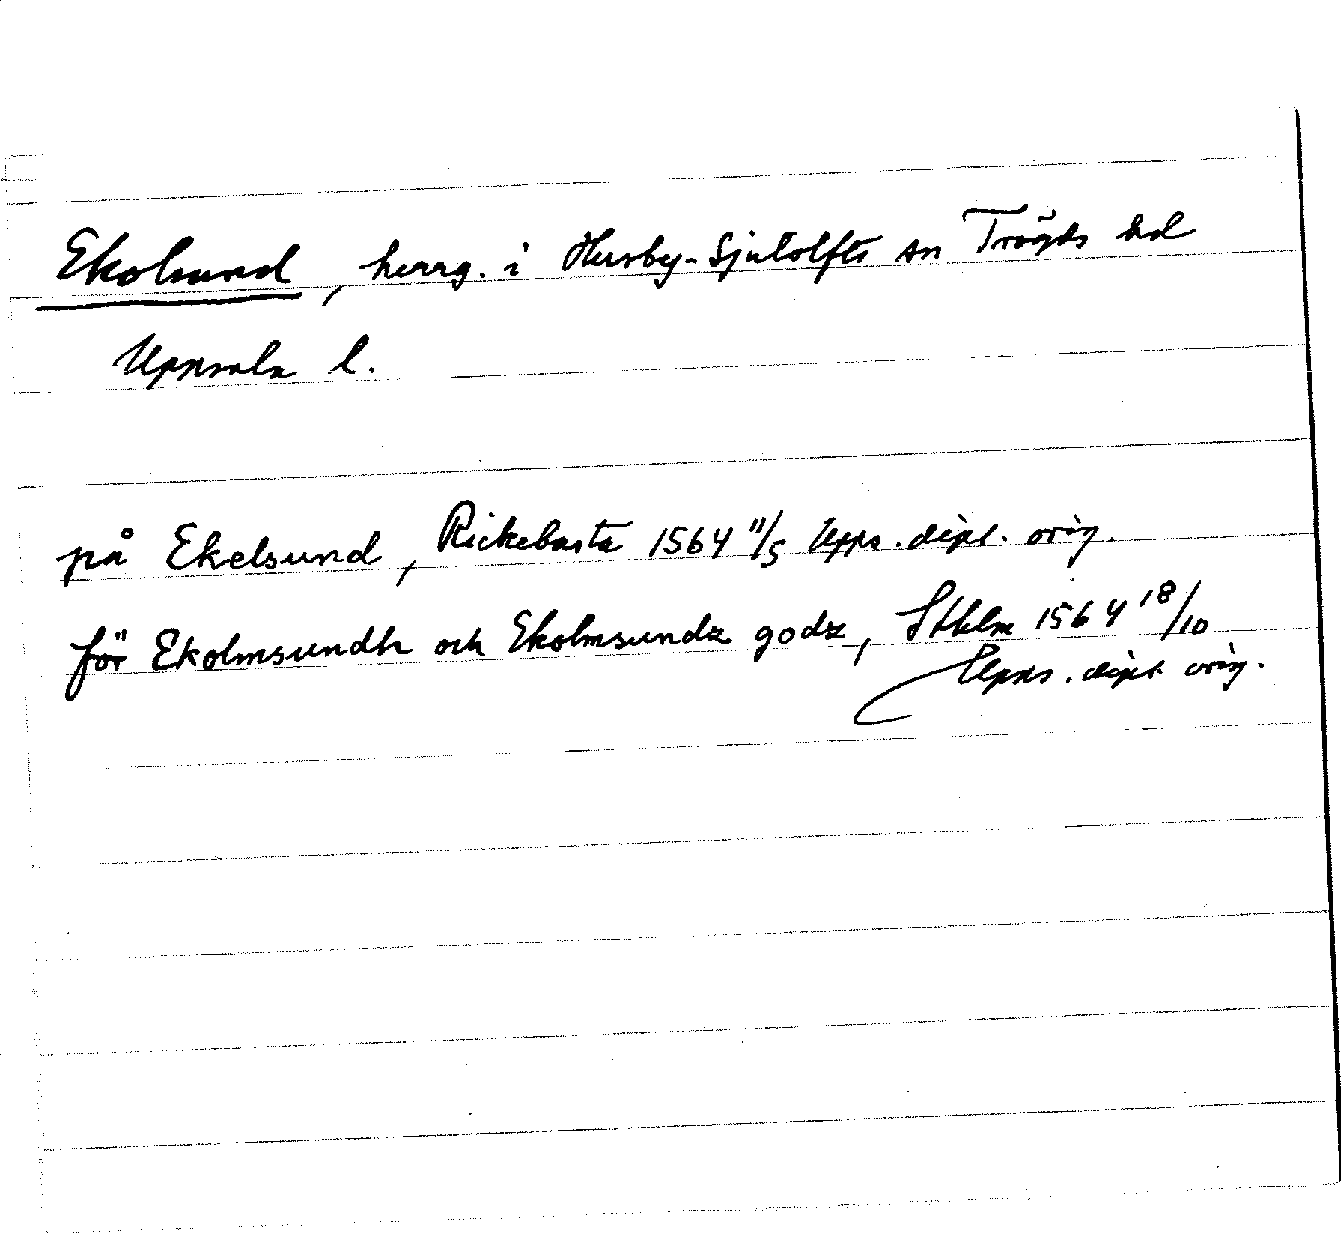 Ekolsund, herrg. i Husby-Sjutolfts sn Trögds hd
Uppsala l.
på Ekelsund, Rickebasta 1564 11/5 Upps. dipl. orig.
för Ekolmsundh och Ekolmsundz godz, Sthlm 1564 18/10
Upps. dipl. orig.